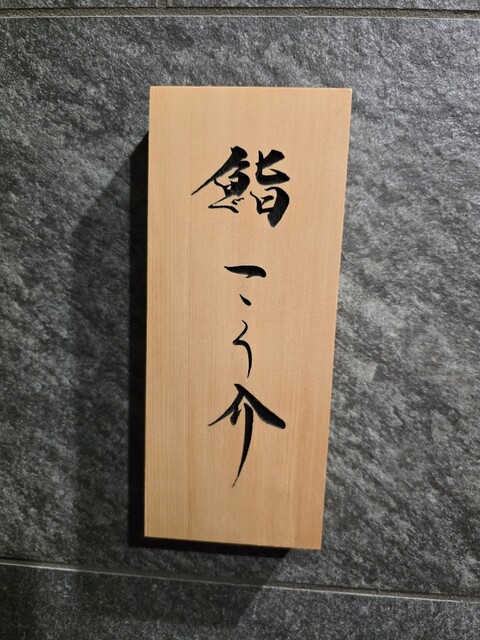 鮨 こう介